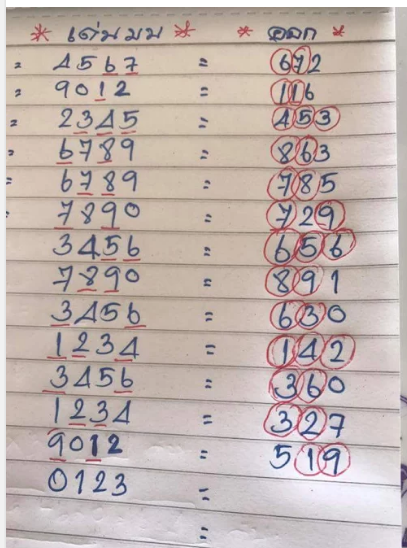 * เด่นบน * * ออก *
= 4567 = 672
= 9012 = 116
= 2345 = 453
= 6789 = 863
= 6789 = 785
= 7890 = 729
3456 = 656
7890 = 891
3456 = 630
1234 = 142
3456 = 360
1234 = 327
9012 = 519
0123 =
=